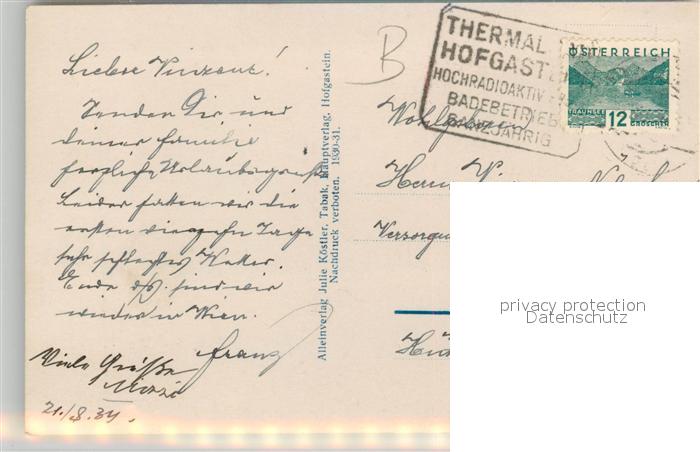 Lieber Vinzenz!
Senden Dir und
deiner Familie
herzliche Urlaubsgrüße
Leider hatten wir die
ersten vierzehn Tage
sehr schlechtes Wetter.
Ende ds. sind wir
wieder in Wien.
Franz
Viele Grüße
21./8.34.
Alleinverlag Julie Köstler, Tabak, Hauptverlag, Hofgastein.
Nachdruck verboten. 1930-31.
B
THERMAL
HOFGAST
HOCHRADIOAKTIV
BADEBETRIEB
GANZJÄHRIG
ÖSTERREICH
TRAUNSEE
12 GROSCHEN
Wohlgeb.
Herrn
Versorgu
privacy protection
Datenschutz